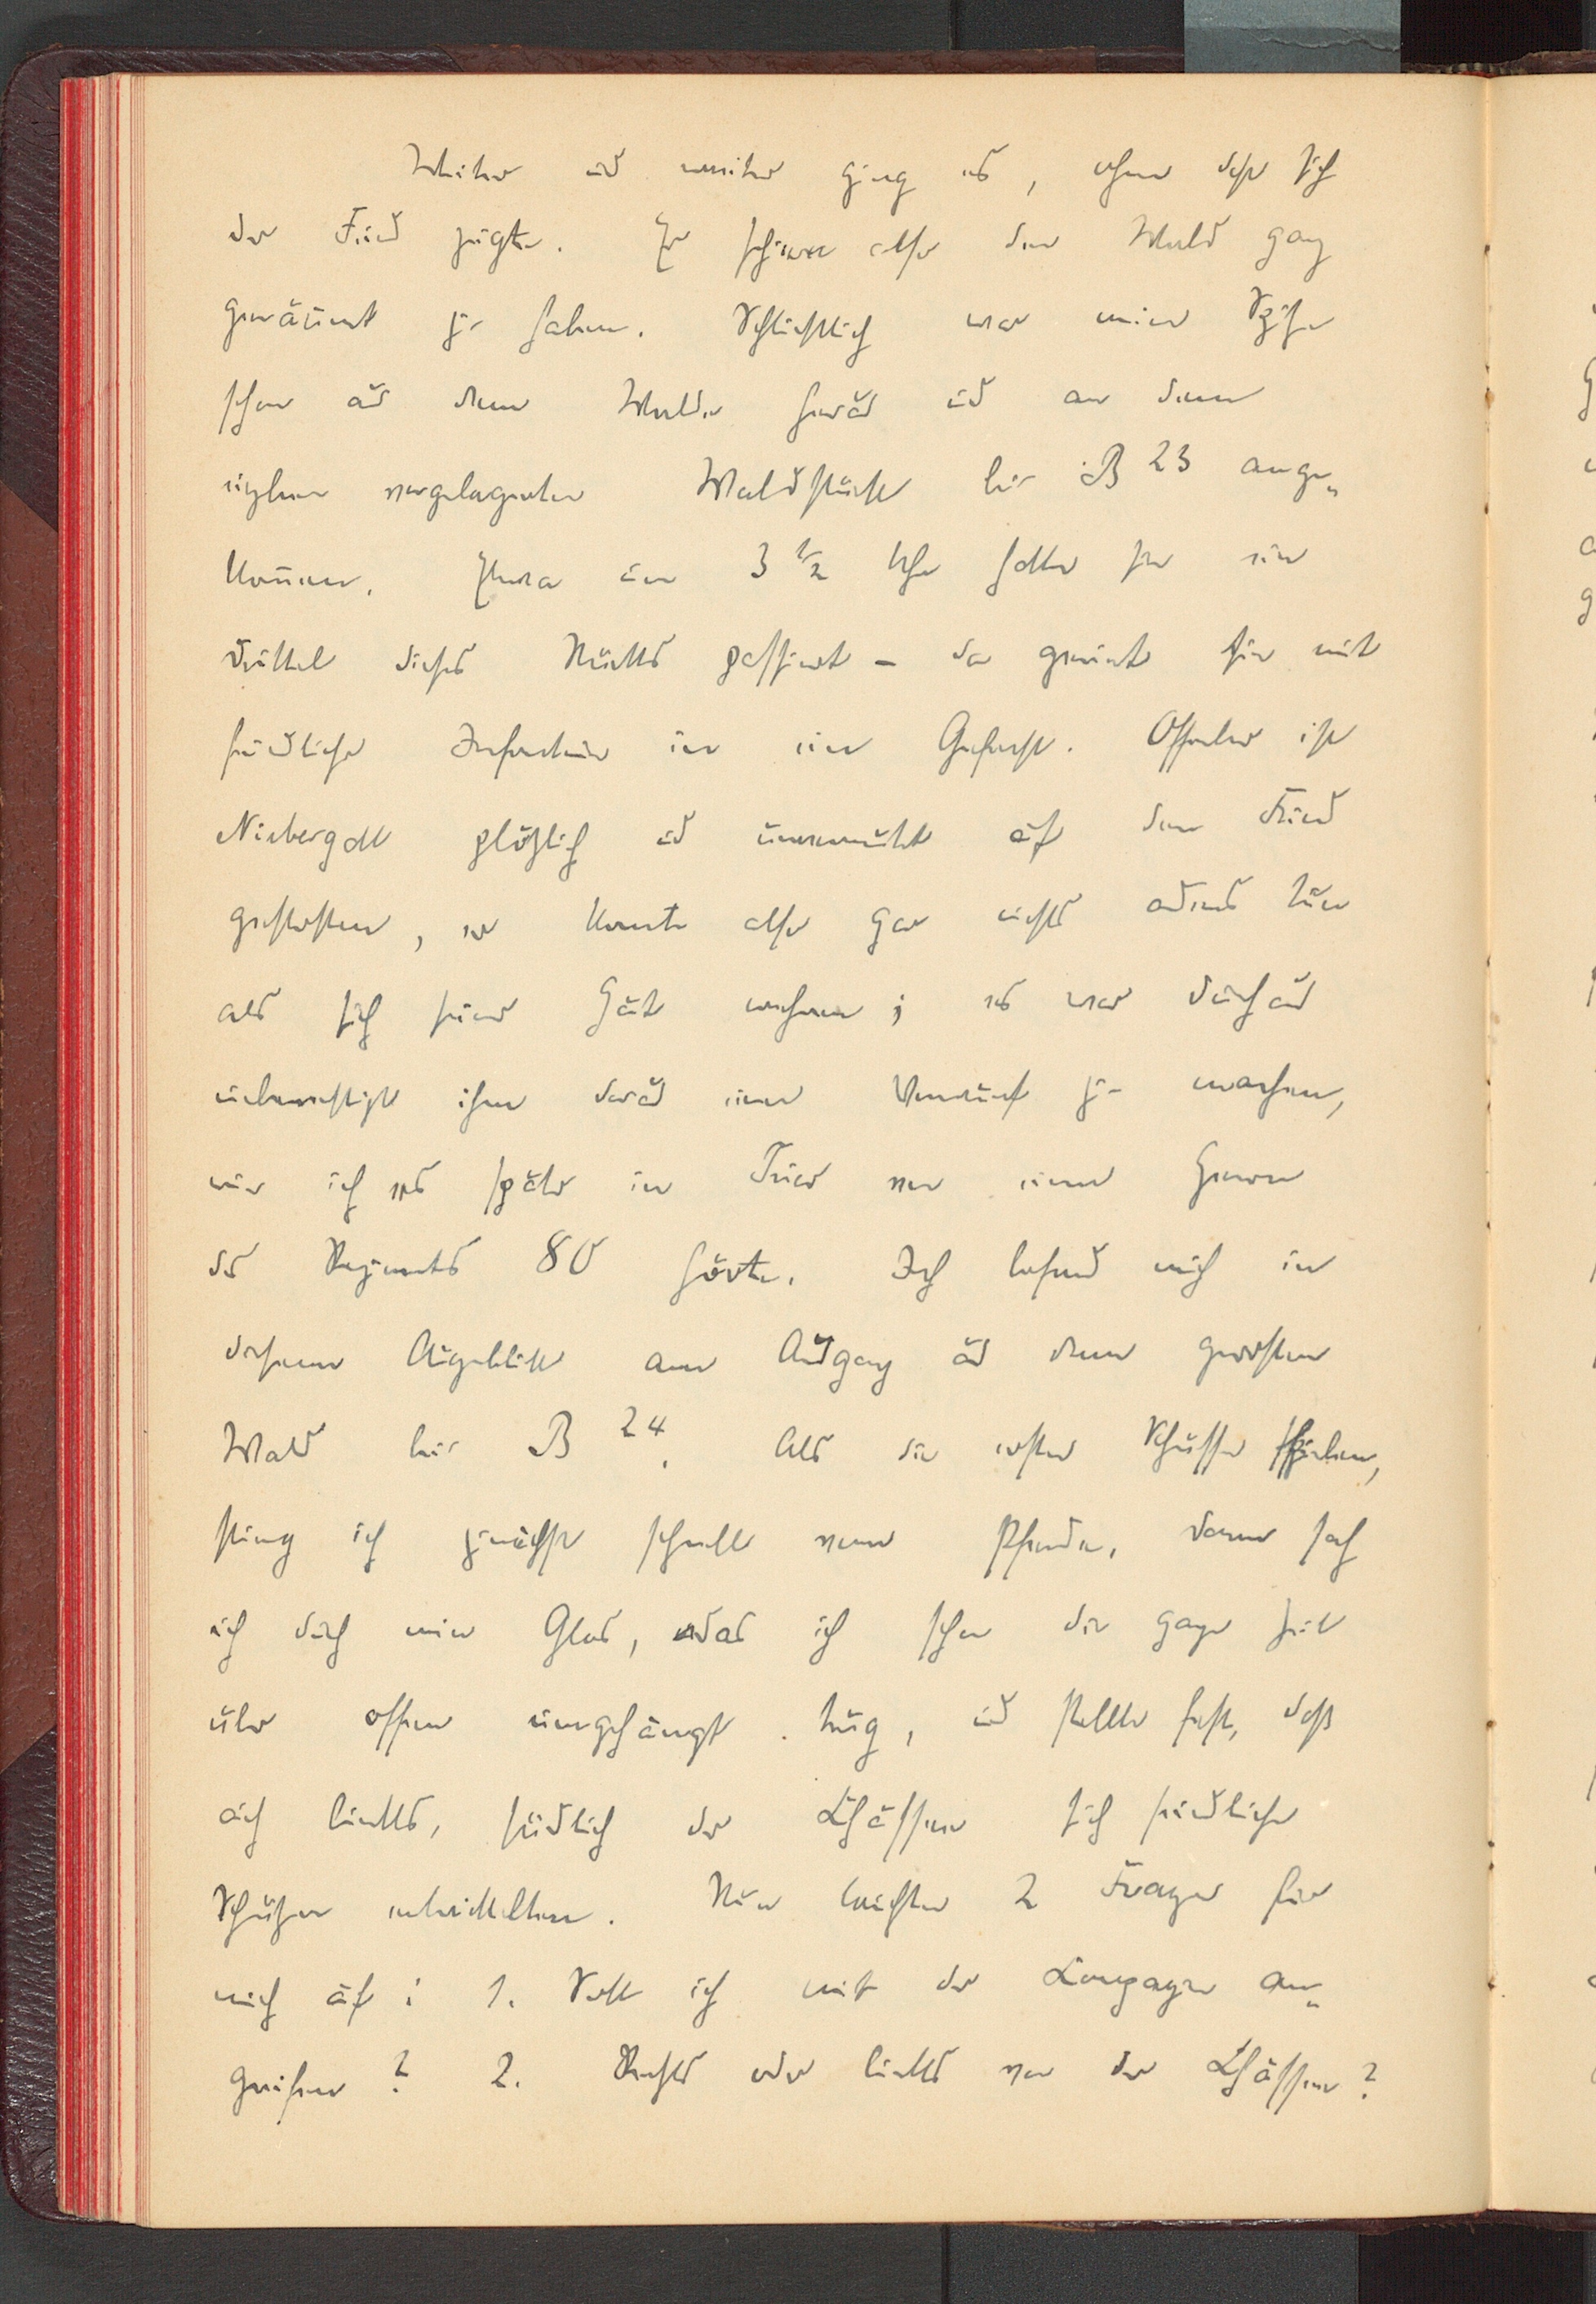 Weiter und weiter ging es, ohne dass sich
der Feind zeigte. Er schien also den Wald ganz
geräumt zu haben. Schliesslich war meine Spitze
schon aus dem Walde heraus und an dem
vorgelagerten Waldstück bei B 23 ange-
kommen. Etwa um 3 1/2 Uhr hatte sie ein
Drittel dieses Stücks passiert - da geriet sie mit
feindlicher Infanterie in ein Gefecht. Offenbar ist
Niebergall plötzlich und unvermutet auf den Feind
gestossen, er konnte also gar nichts anderes tun
als sich seiner Haut wehren; es war durchaus
unberechtigt ihm daraus einen Vorwurf zu machen,
wie ich es später in Trier von einem Herrn
des Regiments 80 hörte. Ich befand mich in
diesem Augenblick am Ausgang aus dem grossen
Wald bei B 24. Als die ersten Schüsse fielen,
stieg ich zunächst schnell vom Pferde, dann sah
ich durch mein Glas, das ich schon die ganze Zeit
über offen umgehängt trug, und stellte fest, daß
auch links, südlich der Chaussee sich feindliche
Schützen entwickelten. Nun tauchten 2 Fragen für
mich auf: 1. Soll ich mit der Compagnie an-
greifen? 2. Rechts oder links von der Chaussee?